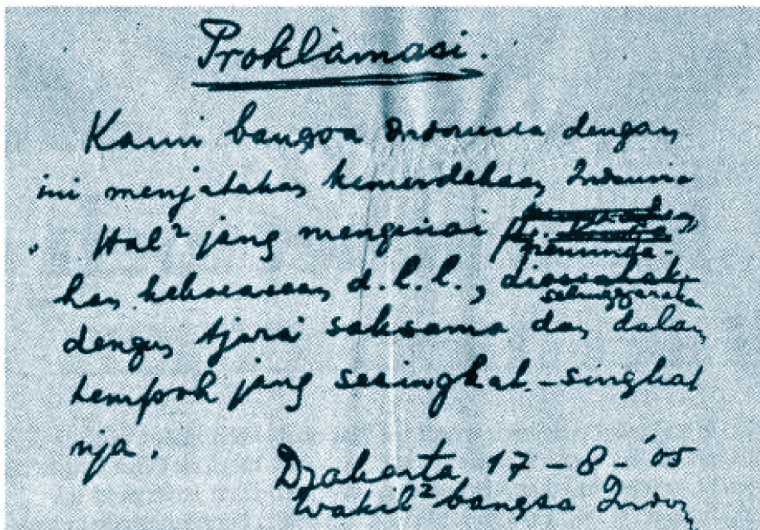 Proklamasi.
Kami bangsa Indonesia dengan
ini menjatakan kemerdekaan Indonesia
. Hal² jang mengenai
peminda-
han kekoeasaan, d.l.l., dioesahak
selenggaraka
dengan tjara saksama dan dalam
tempoh jang sesingkat-singkat
nja.
Djakarta 17 - 8 - '05
Wakil² bangsa Indon